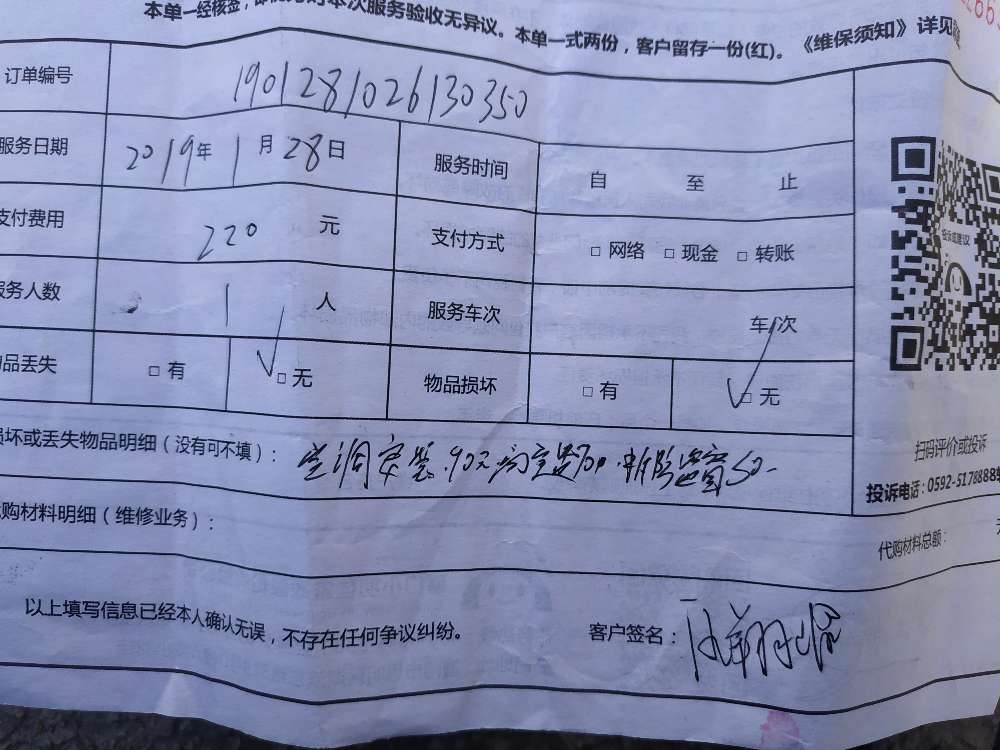 本单一经核签，
对本次服务验收无异议。本单一式两份，客户留存一份(红)。《维保须知》详见
订单编号 1901281026130350
服务日期 2019年 1月 28日 服务时间 自 至 止
支付费用 220 元 支付方式 □ 网络 □ 现金 □ 转账
服务人数 1 人 服务车次 车/次
物品丢失 □ 有 □ 无 物品损坏 □ 有 □ 无
损坏或丢失物品明细（没有可不填）： 空调安装.90元 50-
代购材料明细（维修业务）：
代购材料总额：
以上填写信息已经本人确认无误，不存在任何争议纠纷。 客户签名：
投诉或建议
扫码评价或投诉
投诉电话：0592-5178888